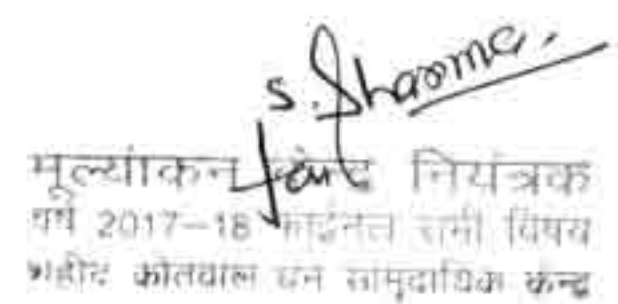 S. Sharma.
for
मूल्यांकन केन्द्र नियंत्रक
वर्ष 2017-18 फाईनल सभी विषय
शहीद कोतवाल धन सामुदायिक केन्द्र